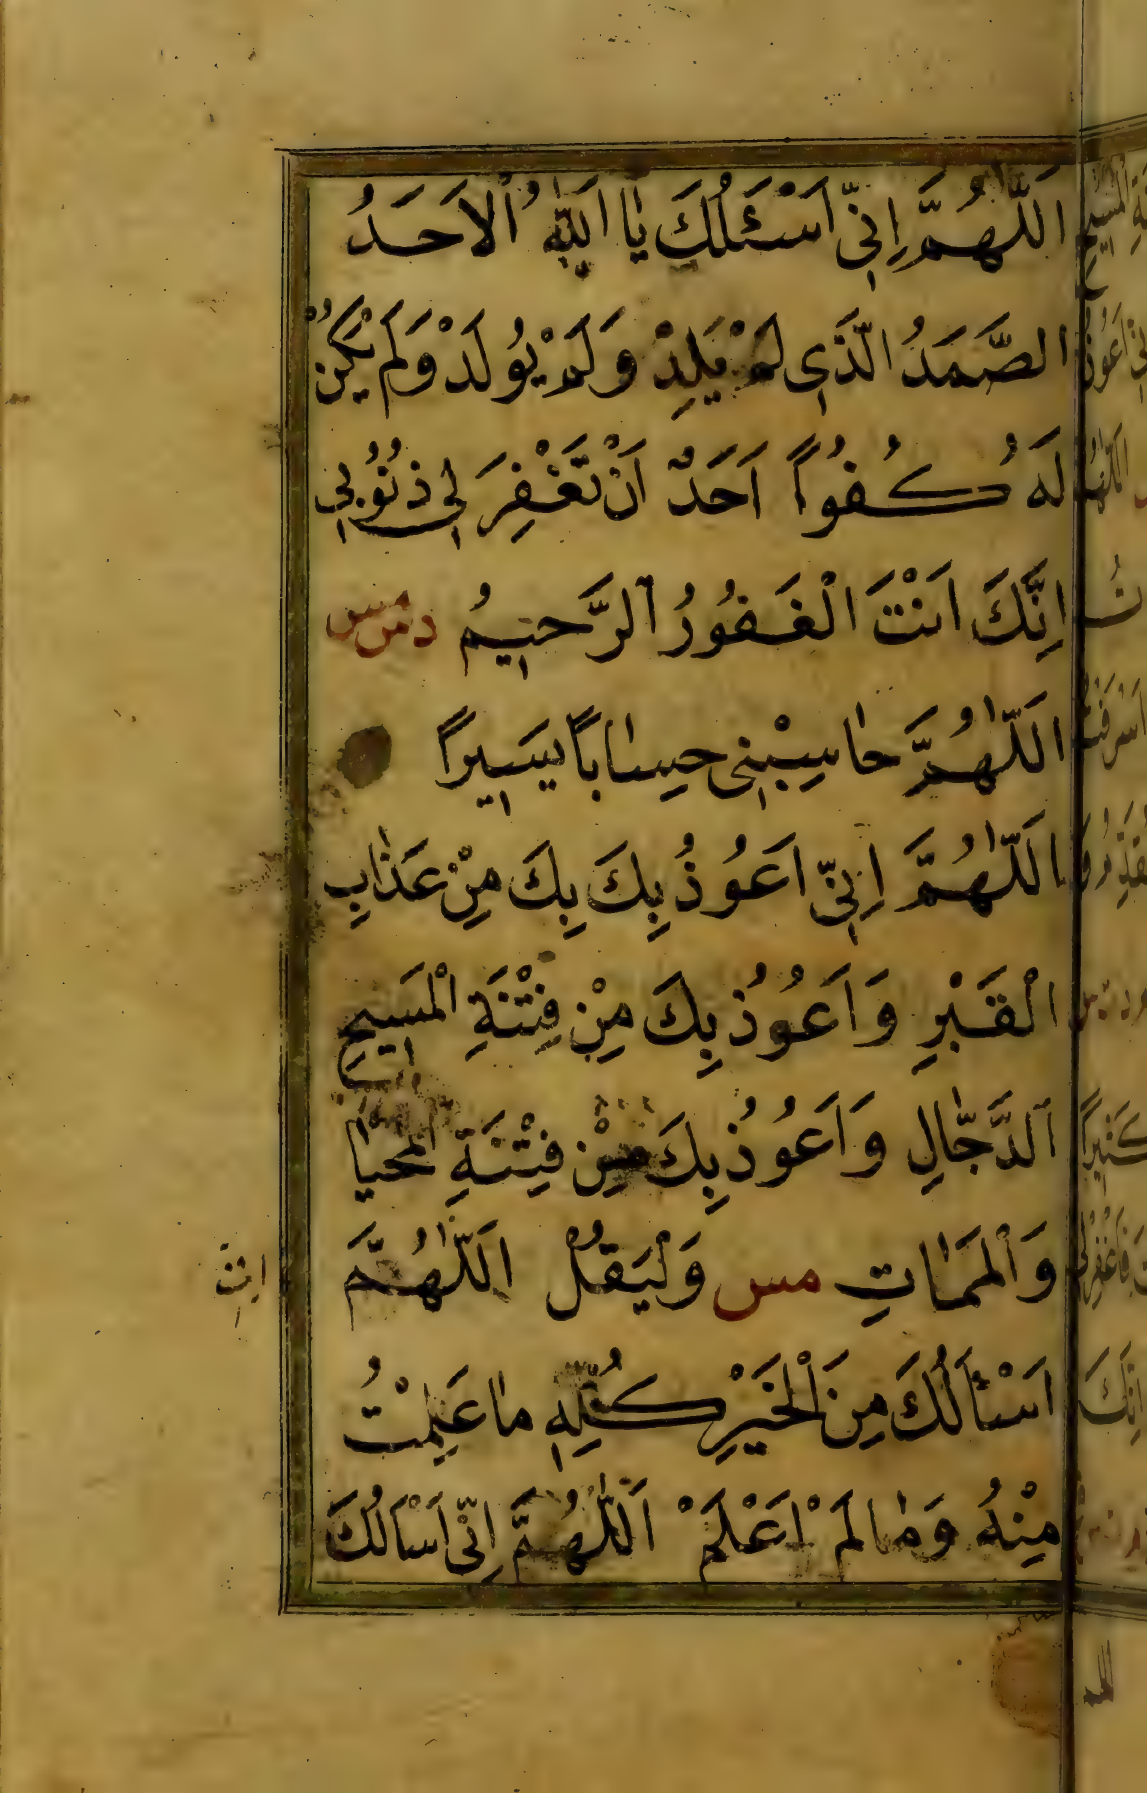 اَللّٰهُمَّ اِنِّي اَسْئَلُكَ يَا اَللّٰهُ الْاَحَدُ
الصَّمَدُ الَّذِي لَمْ يَلِدْ وَلَمْ يُولَدْ وَلَمْ يَكُنْ
لَهُ كُفُوًا اَحَدٌ اَنْ تَغْفِرَ لِي ذُنُوبِي
اِنَّكَ اَنْتَ الْغَفُورُ الرَّحِيمُ د س مس
اَللّٰهُمَّ حَاسِبْنِي حِسَابًا يَسِيرًا
اَللّٰهُمَّ اِنِّي اَعُوذُ بِكَ بِكَ مِنْ عَذَابِ
الْقَبْرِ وَاَعُوذُ بِكَ مِنْ فِتْنَةِ الْمَسِيحِ
الدَّجَّالِ وَاَعُوذُ بِكَ مِنْ فِتْنَةِ الْمَحْيَا
وَالْمَمَاتِ مس وَلْيَقُلْ اَللّٰهُمَّ
اَسْاَلُكَ مِنَ الْخَيْرِ كُلِّهِ مَا عَلِمْتُ
مِنْهُ وَمَا لَمْ اَعْلَمْ اَللّٰهُمَّ اِنِّي اَسْاَلُكَ